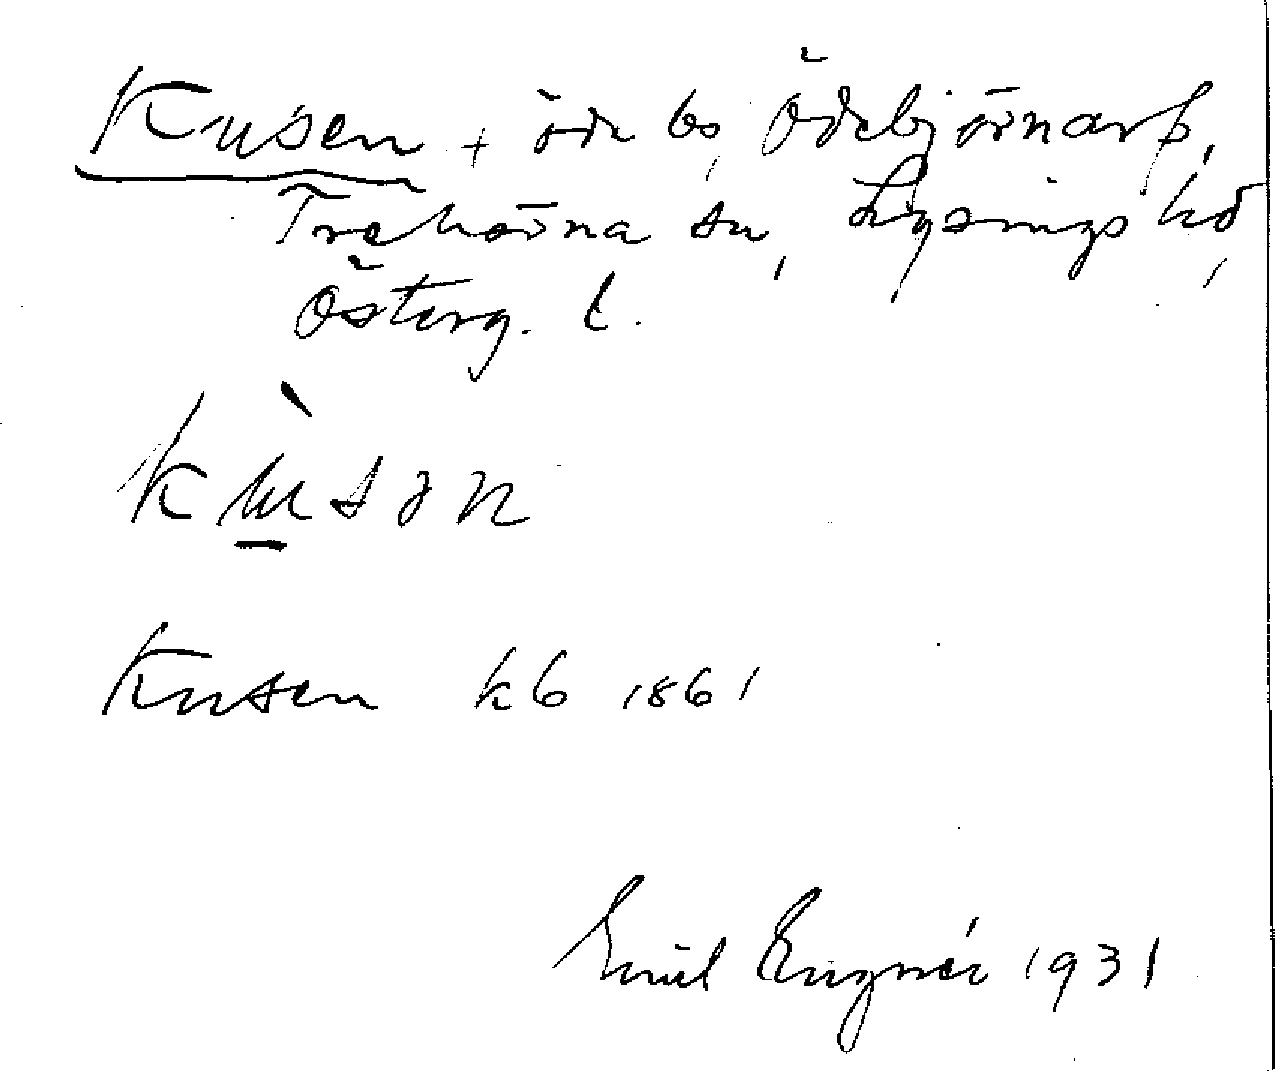 Kusen + öde bs, Ödebjörnarp,
Trehörna sn, Lysings hd,
Österg. l.
Kùsən
Kusen kb 1861
Emil Engnér 1931